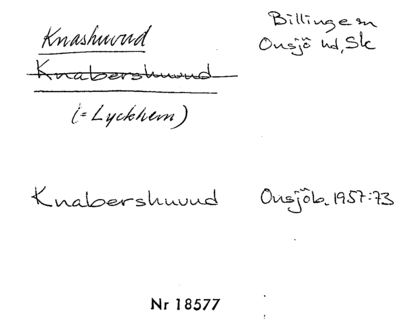 Knashuvud
Billinge sn
Knabershuvud
Onsjö hd, Sk
(= Lyckhem)
Knabershuvud Onsjöb. 1957:73
Nr 18577